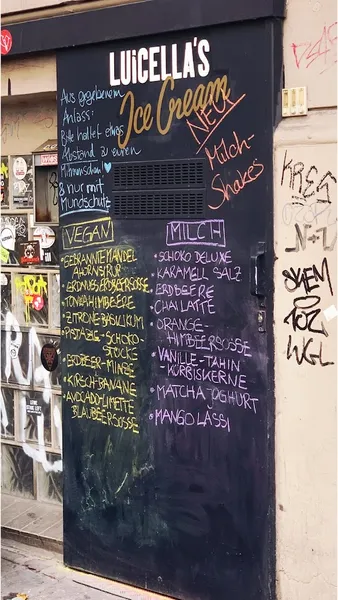 LUiCELLA'S
Ice Cream
Aus gegebenem
Anlass:
Bitte haltet etwas
Abstand zu euren
Mitmenschen! ♥
& nur mit
Mundschutz
NEU
Milch-
Shakes
VEGAN
GEBRANNTE MANDEL
AHORNSIRUP
ERDNUSS ERDBEERSOSSE
TONKAHIMBEERE
ZITRONE BASILIKUM
PISTAZIE-SCHOKO-
STÜCKE
ERDBEER-MINZE
KIRSCH-BANANE
AVOCADO LIMETTE
BLAUBEERSOSSE
MILCH
SCHOKO DELUXE
KARAMELL SALZ
ERDBEERE
CHAI LATTE
ORANGE-
HIMBEERSOSSE
VANILLE-TAHIN
-KÜRBISKERNE
MATCHA-JOGHURT
MANGO LASSI
WGL